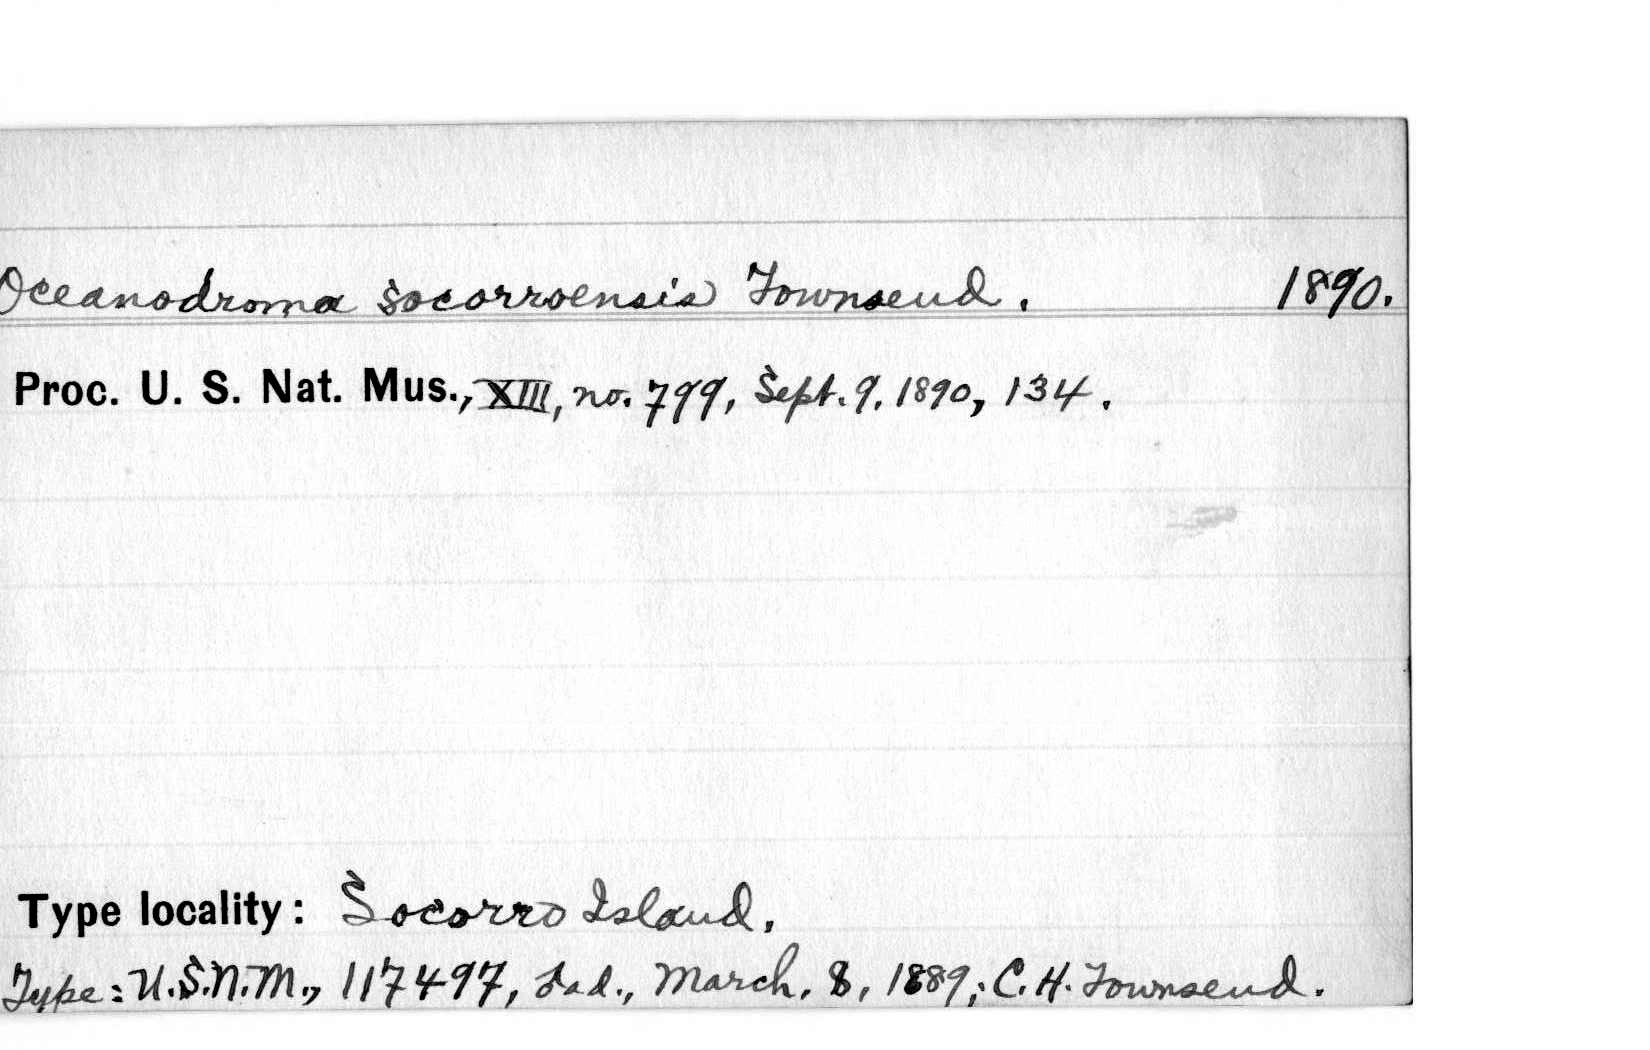 Oceanodroma socorroensis Townsend. 1890.
Proc. U. S. Nat. Mus., XIII, no. 799, Sept. 9, 1890, 134.
Type locality: Socorro Island.
Type: U.S.N.M., 117497, ad., March, 8, 1889; C. H. Townsend.